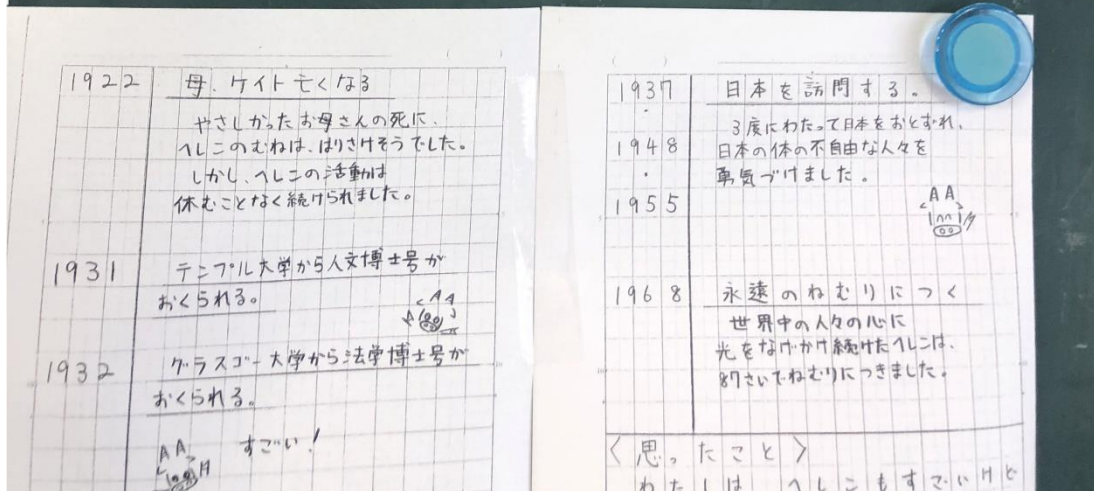 1922 母、ケイト亡くなる
やさしかったお母さんの死に、
ヘレンのむねは、はりさけそうでした。
しかし、ヘレンの活動は
休むことなく続けられました。
1931 テンプル大学から人文博士号が
おくられる。
1932 グラスゴー大学から法学博士号が
おくられる。
すごい!
1937 日本を訪問する。
・
1948
・
1955
3度にわたって日本をおとずれ、
日本の体の不自由な人々を
勇気づけました。
1968 永遠のねむりにつく
世界中の人々の心に
光をなげかけ続けたヘレンは、
87さいでねむりにつきました。
〈思ったこと〉
わたしは、ヘレンもすごいけど